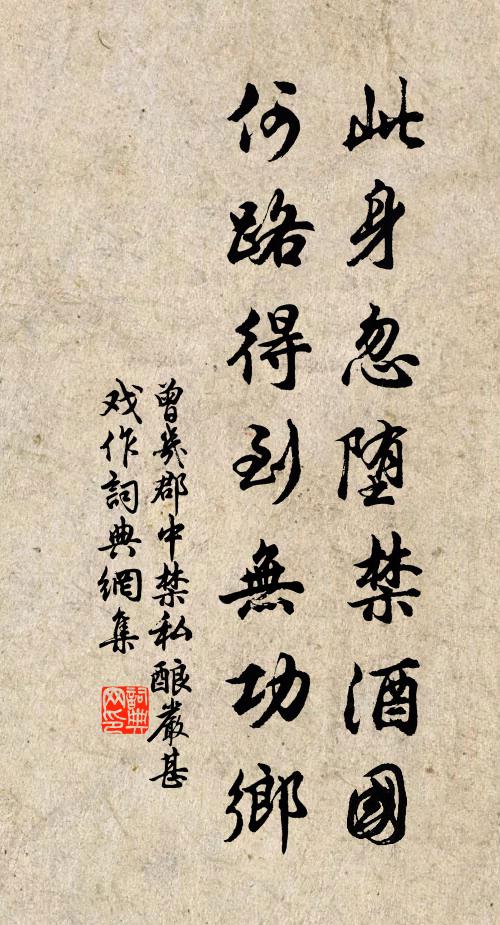 此身忽堕禁酒國
何路得到無功鄉
曾幾郡中禁私酿嚴甚
戏作詞典網集
詞典
网印